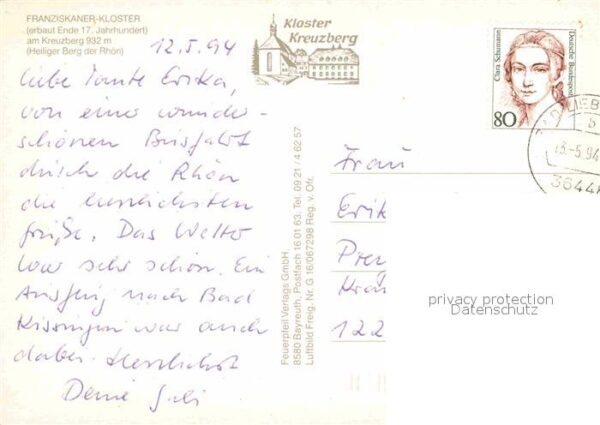 FRANZISKANER-KLOSTER
(erbaut Ende 17. Jahrhundert)
am Kreuzberg 932 m
(Heiliger Berg der Rhön)
12.5.94
Kloster
Kreuzberg
Liebe Tante Erika,
von einer wunder-
schönen Busfahrt
durch die Rhön
die herzlichsten
Grüße. Das Wetter
war sehr schön. Ein
Ausflug nach Bad
Kissingen war auch
dabei. Herzlichst
Deine
Feuerpfeil Verlags GmbH,
8580 Bayreuth, Postfach 16 01 63, Tel. 09 21 / 4 62 57
Luftbild Freig. Nr. G 16/067298 Reg. v. Ofr.
Clara Schumann
Deutsche Bundespost
80
BAD LIEB
b
-5.94
3644
Frau
Erik
122
privacy protection
Datenschutz